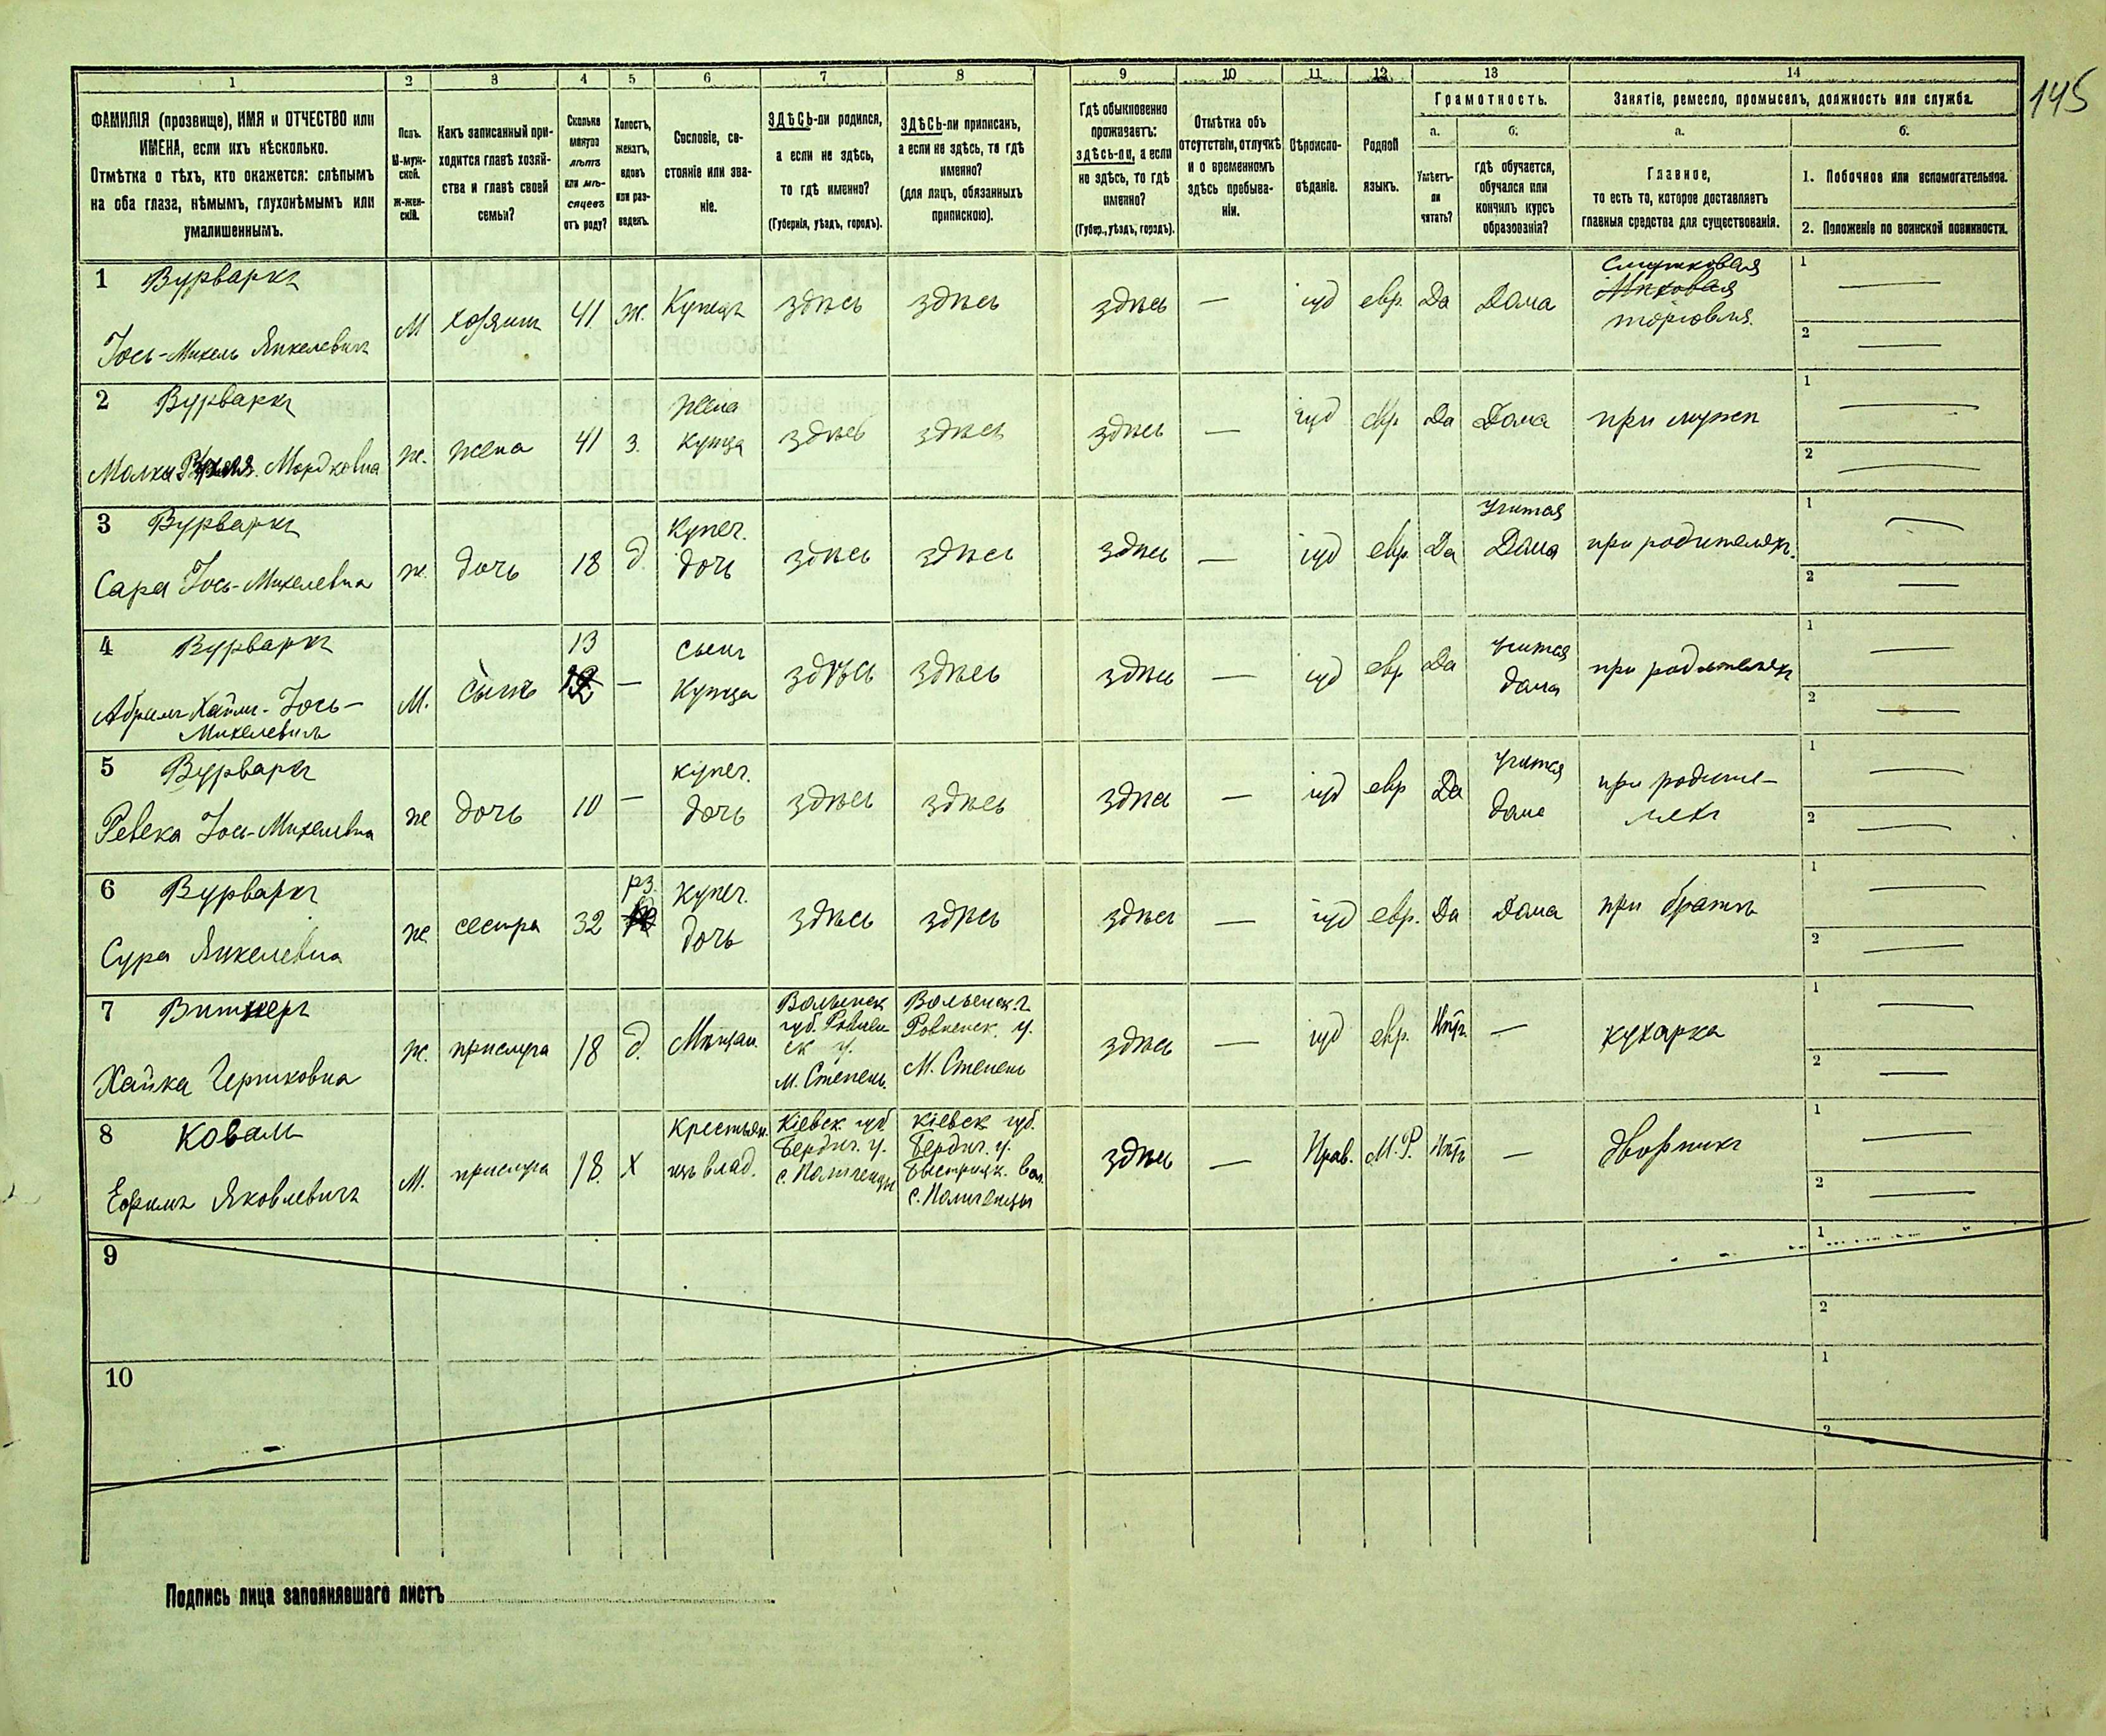 145
1 2 3 4 5 6 7 8 9 10 11 12 13 14
ФАМИЛІЯ (прозвище), ИМЯ и ОТЧЕСТВО или
ИМЕНА, если ихъ нѣсколько.
Отмѣтка о тѣхъ, кто окажется: слѣпымъ
на оба глаза, нѣмымъ, глухонѣмымъ или
умалишеннымъ.
Полъ.
М-муж-
ской.
Ж-жен-
скій.
Какъ записанный при-
ходится главѣ хозяй-
ства и главѣ своей
семьи?
Сколько
минуло
лѣтъ
или мѣ-
сяцевъ
отъ роду?
Холостъ,
женатъ,
вдовъ
или раз-
веденъ.
Сословіе, со-
стояніе или зва-
ніе.
ЗДѢСЬ-ли родился,
а если не здѣсь,
то гдѣ именно?
(Губернія, уѣздъ, городъ).
ЗДѢСЬ-ли приписанъ,
а если не здѣсь, то гдѣ
именно?
(для лицъ, обязанныхъ
припискою).
Гдѣ обыкновенно
проживаетъ:
здѣсь-ли, а если
не здѣсь, то гдѣ
именно?
(Губер., уѣздъ, городъ).
Отмѣтка объ
отсутствіи, отлучкѣ
и о временномъ
здѣсь пребыва-
ніи.
Вѣроиспо-
вѣданіе.
Родной
языкъ.
Грамотность.
а. б.
Умѣетъ-
ли
читать?
гдѣ обучается,
обучался или
кончилъ курсъ
образованія?
Занятіе, ремесло, промыселъ, должность или служба.
а. б.
Главное,
то есть то, которое доставляетъ
главныя средства для существованія.
1. Побочное или вспомогательное.
2. Положеніе по воинской повинности.
1 Вурваргъ
Іось-Михель Янкелевичъ
М хозяинъ 41 ж. Купецъ здѣсь здѣсь здѣсь — іуд евр. Да Дома
торговля.
1 —
2 —
2 Вурваргъ
Малка Мордковна
ж. жена 41 з. жена
купца здѣсь здѣсь здѣсь — іуд евр Да Дома при мужѣ
1 —
2 —
3 Вурваргъ
Сара Іось-Михелевна
ж. дочь 18 д. купеч.
дочь здѣсь здѣсь здѣсь — іуд евр. Да Учится
Дома при родителяхъ.
1 —
2 —
4 Вурваргъ
Абрамъ Хаимъ-Іось-
Михелевичъ
М. сынъ 13 — сынъ
купца здѣсь здѣсь здѣсь — іуд евр Да Учится
дома при родителяхъ
1 —
2 —
5 Вурваргъ
Ревека Іось-Михелевна
ж дочь 10 — купеч.
дочь здѣсь здѣсь здѣсь — іуд евр Да Учится
дома при родите-
ляхъ
1 —
2 —
6 Вурваргъ
Сура Янкелевна
ж. сестра 32 рз. купеч.
дочь здѣсь здѣсь здѣсь — іуд евр. Да Дома при братѣ
1 —
2 —
7
Хайка Гершковна
ж. прислуга 18 д. Мѣщан. Волынск
губ. Ровен
ск у.
М. Степень.
Волынск. г.
Ровенск. у.
М. Степень
здѣсь — іуд евр. Нѣтъ — кухарка
1 —
2 —
8 Коваль
Ефимъ Яковлевичъ
М. прислуга 18. Х Крестьян.
изъ влад. Кіевск. губ
Бердич. у.
с. Поличенцы
Кіевск губ.
Бердич. у.
Быстриц. вол.
с. Поличенцы
здѣсь — Прав. М.Р. Нѣтъ — дворникъ
1 —
2 —
9
1
2
10
1
2
Подпись лица заполнявшаго листъ